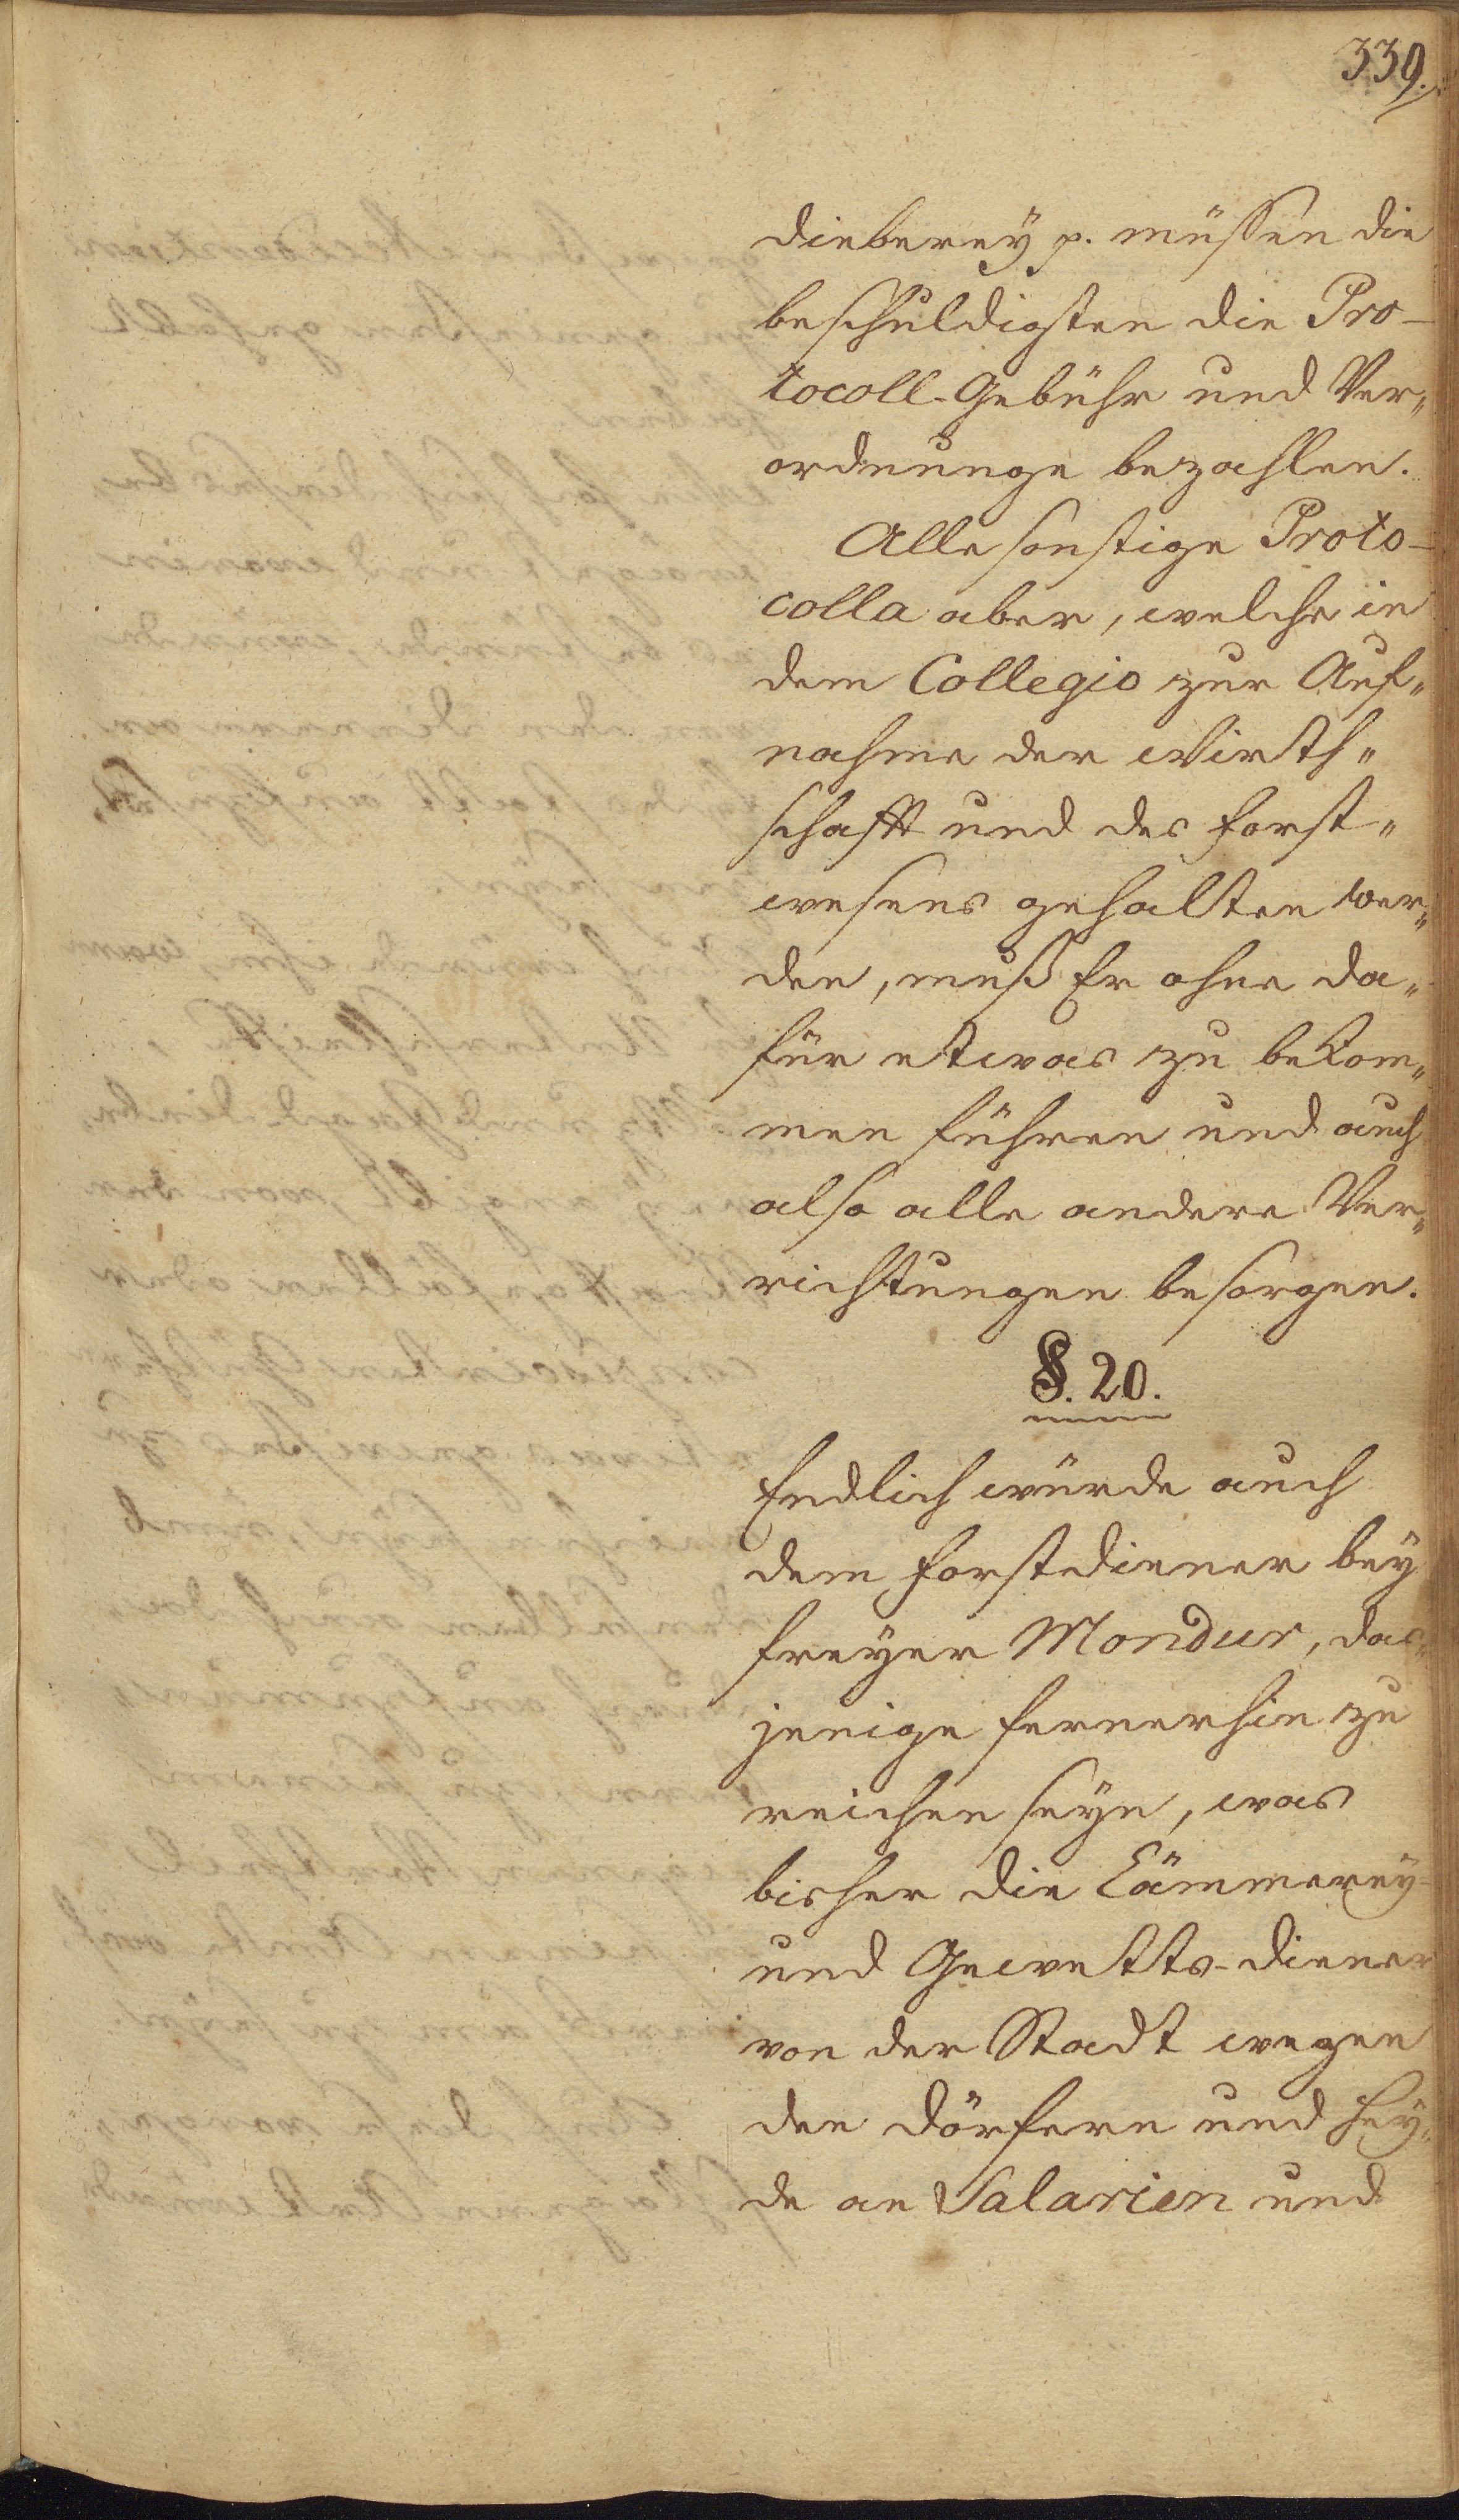 339.
dieberey p. müssen die
beschuldigten die Pro-
tocoll-Gebühr und Ver„
ordnunge bezahlen.
Alle sonstige Proto-
colla aber, welche in
dem Collegio zur Auf„
nahme der Wirth„
schafft und des Forst„
wesens gehalten wer„
den, muß Er ohne da„
für etwas zu bekom„
men führen und auch
also alle andere Ver„
richtungen besorgen.
§. 20.
Endlich würde auch
dem Forstdiener bey
freyer Mondur, das„
jenige fernerhin zu
reichen seyn, was
bisher die Cämmerey-
und Gewetts-diener
von der Stadt wegen
den Dörfern und Hey„
de an Salarien und